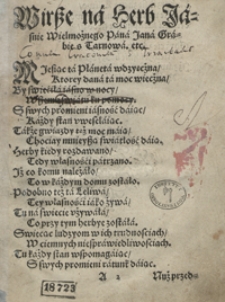 Wirſze ná Herb Já-
śnie Wielmożnego Páná Janá Grá-
bie z Tarnowá, etc.
MJeśiąc tá Plánetá wdzyęczna/
Ktorey daná tá moc wiecżna/
By świećiłá iásno w nocy/
S swych promieni iásność dáiąc/
Káżdy stan vweseláiąc.
Tákże gwiazdy też moc máią/
Chociay mnieyſſą świátłość dáią.
Herby kiedy rozdawano/
Tedy własności pátrzano.
Jż co komu należáło/
To w káżdym domu zostáło.
Podobno też tá Leliwá/
Tey własności iáko żywá/
Tu ná świecie vżywáłá/
Co przy tym herbye zostáłá.
Swiecąc ludzyom w ich trudnośćiach/
W ciemnych niespráwiedliwościach.
Tu káżdy stan wspomagáiąc/
S swych promieni rátunk dáiąc.
A 2 Nuż przed-
18723